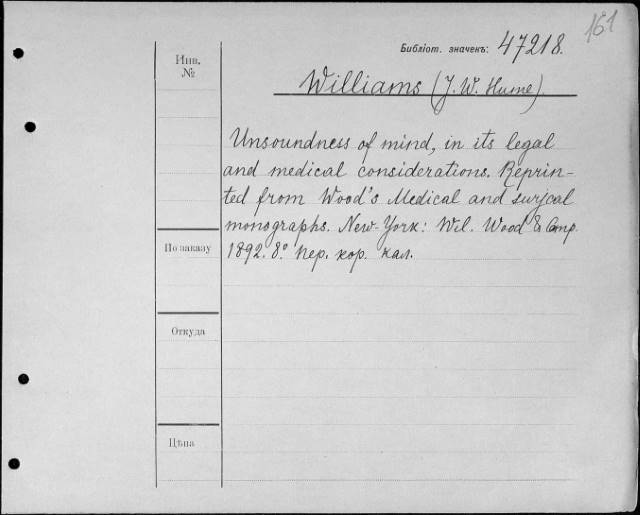 161
Библіот. значекъ: 47218.
Инв.
№
Williams (J. W. Hume)
Unsoundness of mind, in its legal
and medical considerations. Reprin-
ted from Wood's Medical and surjcal
monographs. New-York: Wil. Wood & Comp.
1892. 8º. пер. кор. кал.
По заказу
Откуда
Цѣна